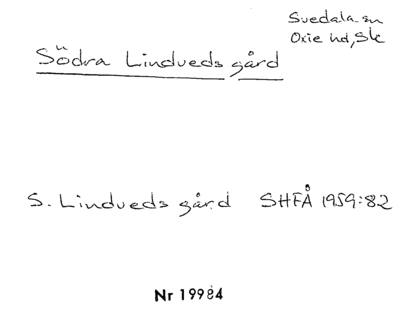 Svedala sn
Oxie hd, Sk
Södra Lindveds gård
S. Lindveds gård SHFÅ 1959:82
Nr 19984